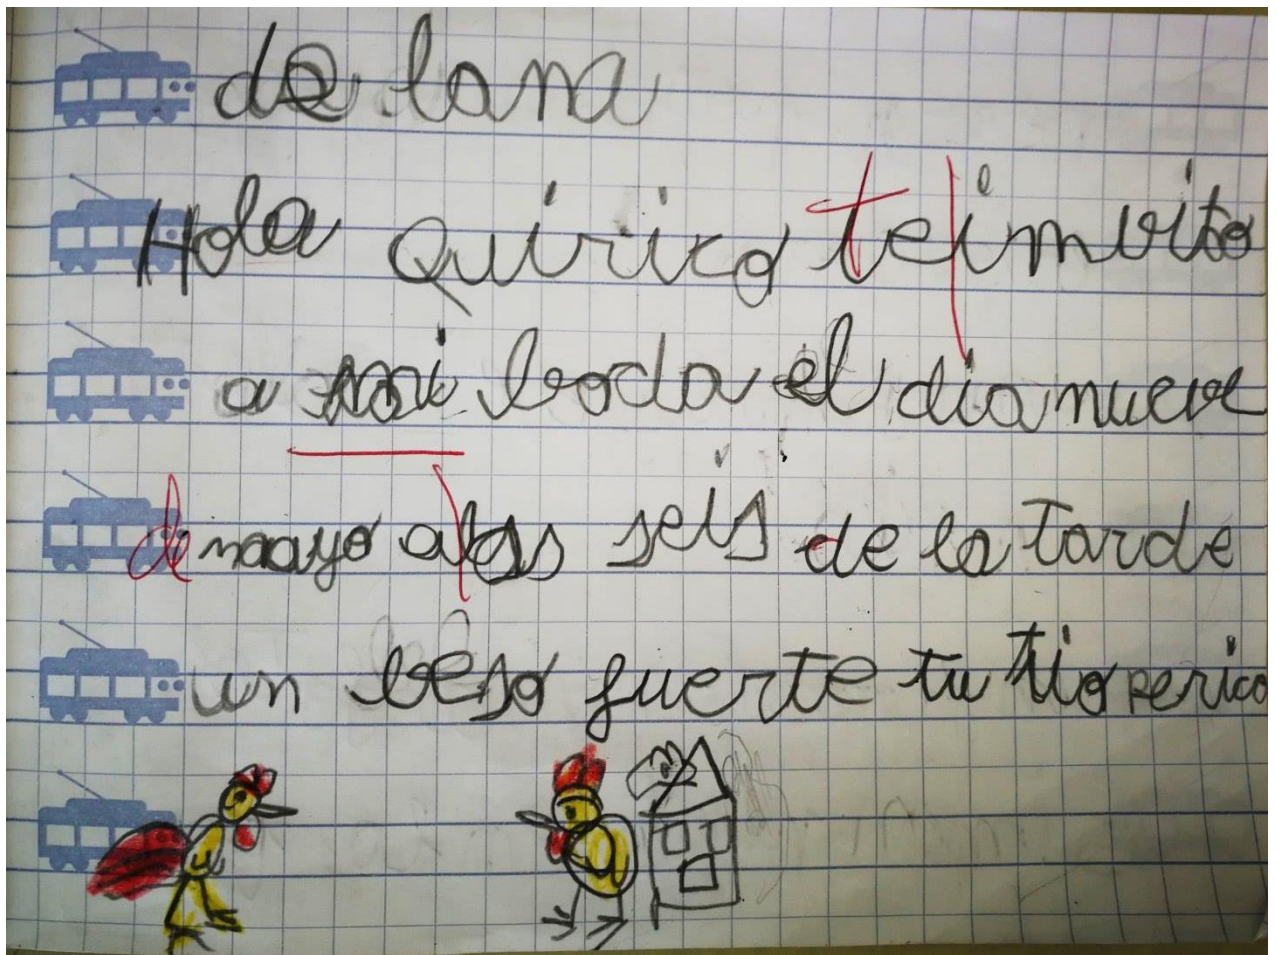 de lana
Hola Quirico te invito
a mi boda el dia nueve
de mayo a las seis de la Tarde
un beso fuerte tu tio perico